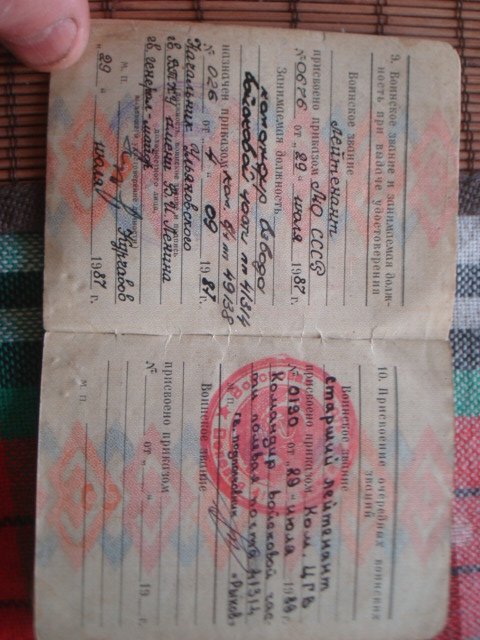 9. Воинское звание и занимаемая долж-
ность при выдаче удостоверения
Воинское звание
лейтенант
присвоено приказом МО СССР
№ 0676 от „29“ июля 1987 г.
Занимаемая должность
командир взвода
войсковой части пп 41314
назначен приказом ком. в/ч пп 49138
№ 026 от „4“ 09 1987 г.
Начальник Ульяновского
гв. ВТКУ имени В.И. Ленина
гв. генерал-майор
М. П.
„29“ июля 1987 г.
10. Присвоение очередных воинских
званий
Воинское звание
старший лейтенант
присвоено приказом Ком. ЦГВ
№ 0130 от „29“ июля 1989 г.
Командир войсковой час
ти полевая почта 41314
М. П. гв. подполковник „Рыков“
Воинское звание
присвоено приказом
№ от „ “ 19 г.
М. П.